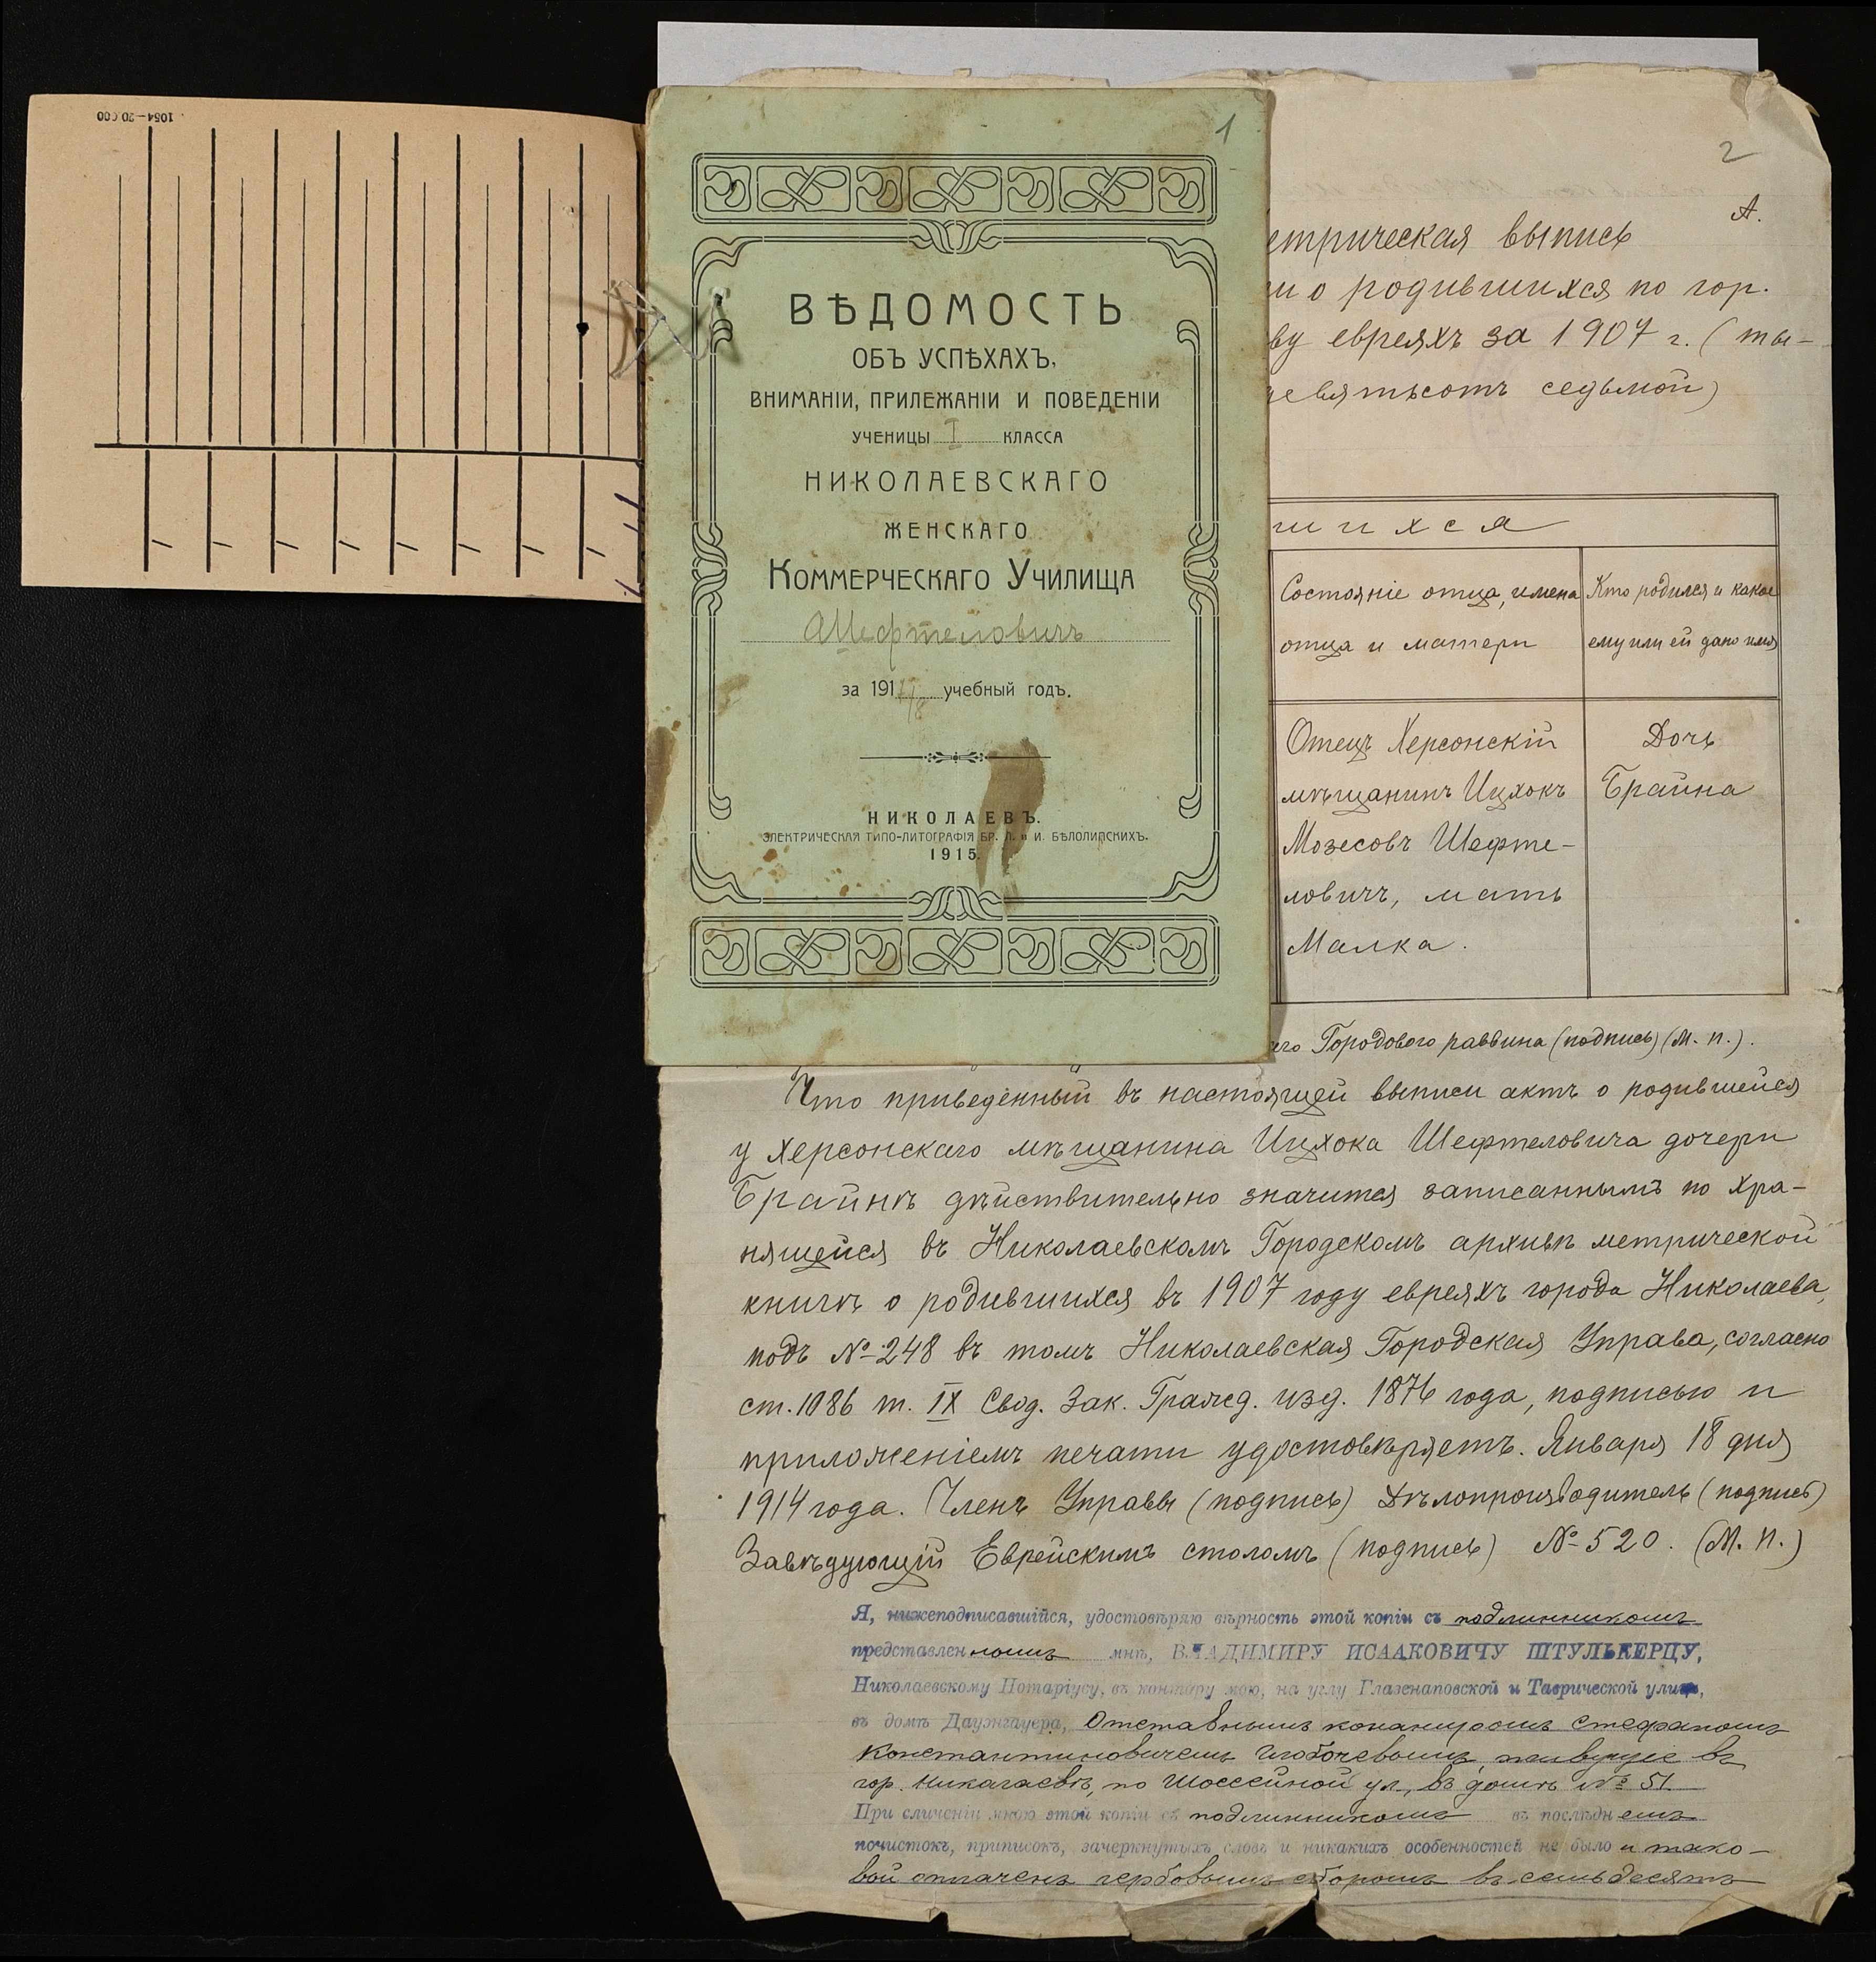 1054—20.000
1
ВѢДОМОСТЬ
ОБЪ УСПѢХАХЪ,
ВНИМАНІИ, ПРИЛЕЖАНІИ И ПОВЕДЕНІИ
УЧЕНИЦЫ I КЛАССА
НИКОЛАЕВСКАГО
ЖЕНСКАГО
КОММЕРЧЕСКАГО УЧИЛИЩА
Шефтеловичъ
за 191 учебный годъ.
НИКОЛАЕВЪ.
ЭЛЕКТРИЧЕСКАЯ ТИПО-ЛИТОГРАФІЯ БР. Л. и И. БѢЛОЛИПСКИХЪ.
1915.
2
А.
етрическая выпись
ги о родившихся по гор.
ву евреяхъ за 1907 г. (ты-
девятьсотъ седьмой)
шихся
Состояніе отца, имена
отца и матери
Кто родился и какое
ему или ей дано имя
Отецъ Херсонскій
мѣщанинъ Ицхокъ
Мозесовъ Шефте-
ловичъ, мать
Малка.
Дочь
Брайна
его Городового раввина (подпись) (М. П.).
Что приведенный въ настоящей выписи актъ о родившейся
у Херсонскаго мѣщанина Ицхока Шефтеловича дочери
Брайнѣ дѣйствительно значится записаннымъ по хра-
нящейся въ Николаевскомъ Городскомъ архивѣ метрической
книгѣ о родившихся въ 1907 году евреяхъ города Николаева,
подъ № 248 въ томъ Николаевская Городская Управа, согласно
ст. 1086 т. IX Свод. Зак. Гражд. изд. 1876 года, подписью и
приложеніемъ печати удостовѣряетъ. Января 18 дня
1914 года. Членъ Управы (подпись) Дѣлопроизводитель (подпись)
Завѣдующій Еврейскимъ столомъ (подпись) № 520. (М. П.)
Я, нижеподписавшійся, удостовѣряю вѣрность этой копіи съ подлинникомъ
представленнымъ мнѣ, ВЛАДИМИРУ ИСААКОВИЧУ ШТУЛЬКЕРЦУ,
Николаевскому Нотаріусу, въ контору мою, на углу Глазенаповской и Таврической улицъ,
въ домѣ Даунгауера, Отставнымъ канониромъ Стефаномъ
Константиновичемъ живущіе въ
гор. Николаевѣ, по Шоссейной ул., въ домѣ № 51.
При сличеніи мною этой копіи съ подлинникомъ въ послѣднемъ
почистокъ, приписокъ, зачеркнутыхъ словъ и никакихъ особенностей не было и тако-
вой оплаченъ гербовымъ сборомъ въ семьдесятъ